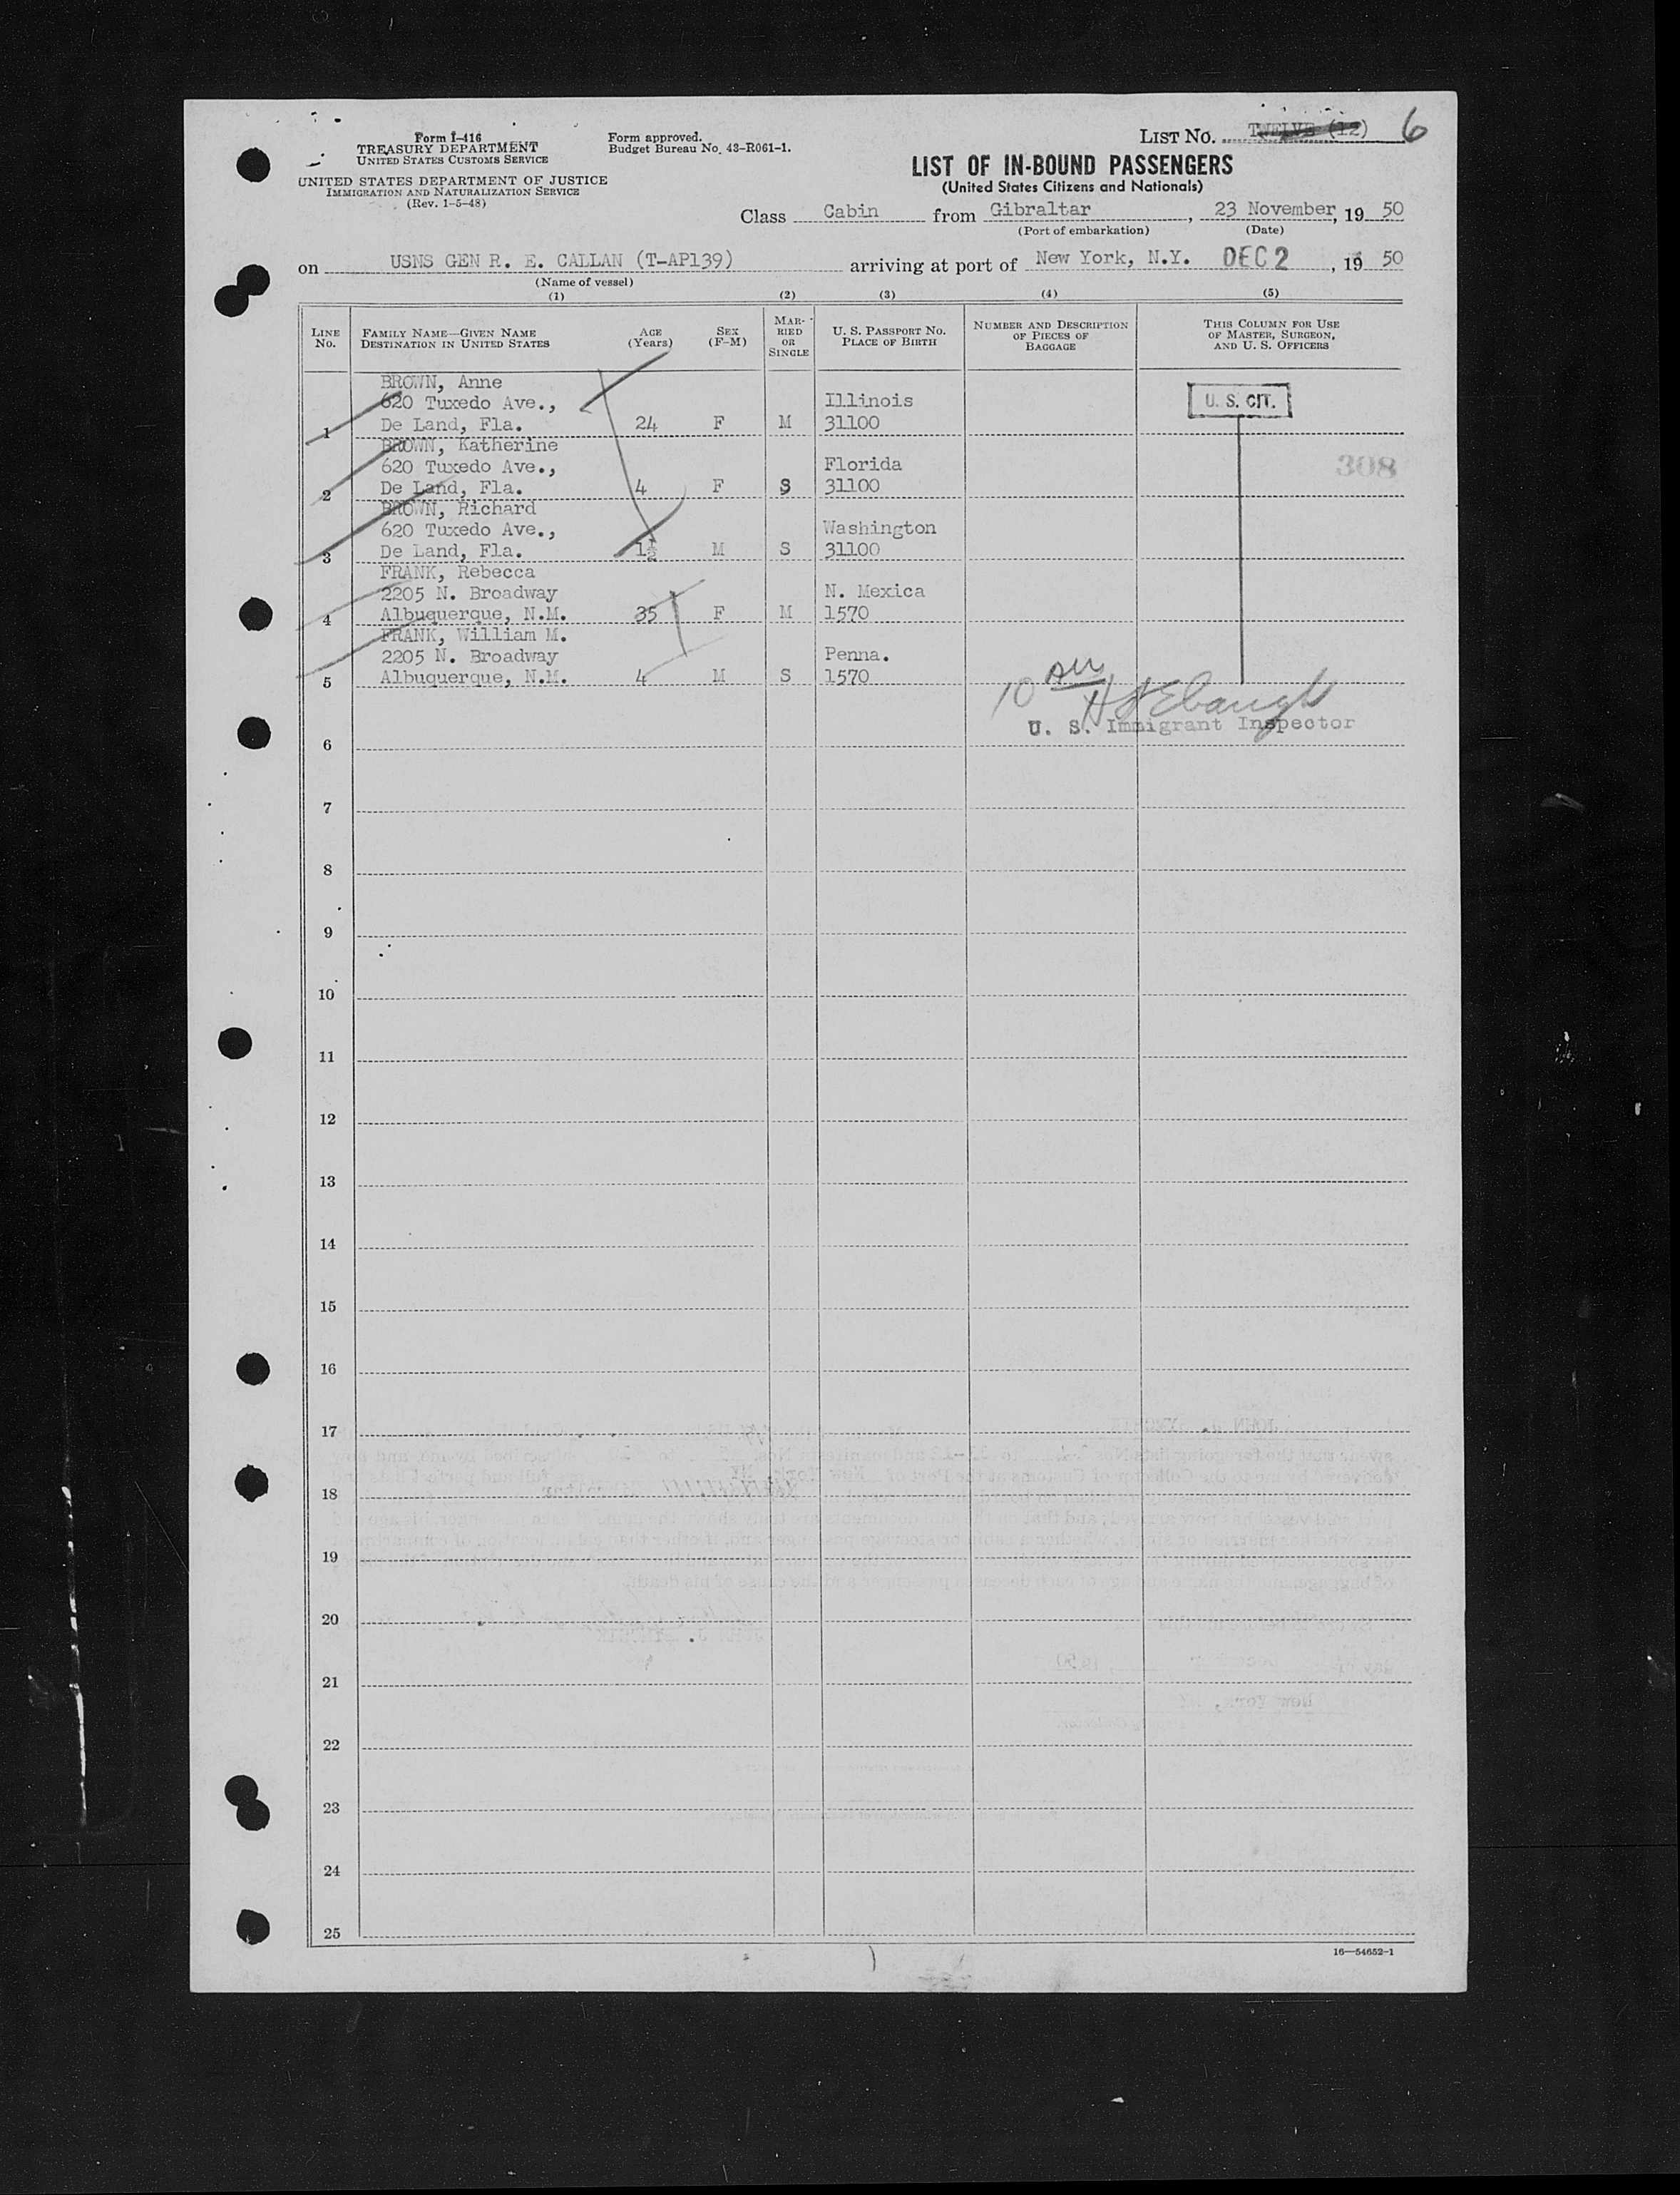 Form I-416
TREASURY DEPARTMENT
UNITED STATES CUSTOMS SERVICE
UNITED STATES DEPARTMENT OF JUSTICE
IMMIGRATION AND NATURALIZATION SERVICE
(Rev. 1-5-48)
Form approved.
Budget Bureau No. 43-R061-1.
LIST NO. TWELVE (12) 6
LIST OF IN-BOUND PASSENGERS
(United States Citizens and Nationals)
Class Cabin from Gibraltar, 23 November, 19 50
(Port of embarkation) (Date)
on USNS GEN R. E. CALLAN (T-AP139) arriving at port of New York, N.Y. DEC 2, 19 50
(Name of vessel)
(1) (2) (3) (4) (5)
LINE No. FAMILY NAME—GIVEN NAME DESTINATION IN UNITED STATES AGE (Years) SEX (F-M) MARRIED OR SINGLE U. S. PASSPORT NO. PLACE OF BIRTH NUMBER AND DESCRIPTION OF PIECES OF BAGGAGE THIS COLUMN FOR USE OF MASTER, SURGEON, AND U. S. OFFICERS
BROWN, Anne
620 Tuxedo Ave., Illinois U. S. CIT.
1 De Land, Fla. 24 F M 31100
BROWN, Katherine
620 Tuxedo Ave., Florida 308
2 De Land, Fla. 4 F S 31100
BROWN, Richard
620 Tuxedo Ave., Washington
3 De Land, Fla. 1½ M S 31100
FRANK, Rebecca
2205 N. Broadway N. Mexica
4 Albuquerque, N.M. 35 F M 1570
FRANK, William M.
2205 N. Broadway Penna.
5 Albuquerque, N.M. 4 M S 1570
10 AM
U. S. Immigrant Inspector
6
7
8
9
10
11
12
13
14
15
16
17
18
19
20
21
22
23
24
25
16—54652-1